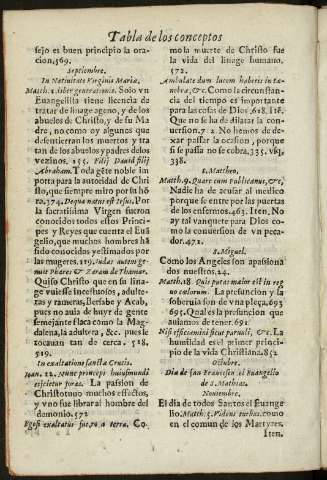 Tabla de los conceptos
sejo es buen principio la ora-
cion. 569.
Septiembre.
In Natiuitate Virginis Mariæ.
Matth. 1. liber generationis. Solo vn
Euangelista tiene licencia de
tratar de linage ageno, y de los
abuelos de Christo, y de su Ma
dre, no como oy algunos que
desentierran los muertos y tra
tan de los abuelos y padres de los
vezinos. 155. Filij Dauid filij
Abraham. Toda gẽte noble im
porta para la autoridad de Chri
sto, que siempre miro por su hõ
ra. 374. Dequa natus est Iesus. Por
la sacratissima Virgen fueron
conocidos todos estos Princi-
pes y Reyes que cuenta el Euã
gelio, que muchos hombres hã
sido conocidos y estimados por
las mugeres. 219. Iudas autem ge-
nuit Phares & Zaram de Thamar.
Quiso Christo que en su linage
vuiesse incestuosos, adulte-
ras y rameras, Bersabe y Acab,
pues no auia de huyr de gente
semejante flaca como la Mag-
dalena, la adultera, &c. pues le
tocauan tan de cerca. 518.
519.
In exaltatione sanctæ Crucis.
Ioan. 12. Nunc princeps huiusmundi
eijcietur foras. La passion de
Christo tuuo muchos effectos,
y vno fue librar al hombre del
demonio. 572
Ego si exaltatus fuero a terra. Co.
mo la muerte de Christo fue
la vida del linage humano.
572.
Ambulate dum lucem habetis in te-
nebra, &c. Como la circunstan-
cia del tiempo es importante
para las cosas de Dios. 618. 118.
Que no se ha de dilatar la con-
uersion. 72. No hemos de de-
xar passar la ocasion, porque
si se passa no se cobra. 335. 163.
338.
S. Mattheo.
Matth. 9. Quare cum publicanis, &c.
Nadie ha de acusar al medico
porque se entre por las puertas
de los enfermos. 463. Iten, No
ay tal vanquete para Dios co-
mo la conuersion de vn peca-
dor. 471.
S. Miguel.
Como los Angeles son apasiona
dos nuestros. 24.
Matth. 18. Quis putas maior est in reg
no cælorum. La presuncion y la
soberuia son de vna pieça. 693
695. Qual es la presuncion que
auiamos de tener. 691.
Nisi efficiamini sicut paruuli, &c. La
humildad es el primer princi-
pio de la vida Christiana. 852
Octubre.
Dia de san Francisco el Euangelio
de S. Mathias.
Nouiembre.
El dia de todos Santos el Euange
lio. Matth. 5. Videns turbas. como
en el comun de los Martyres.
Iten.